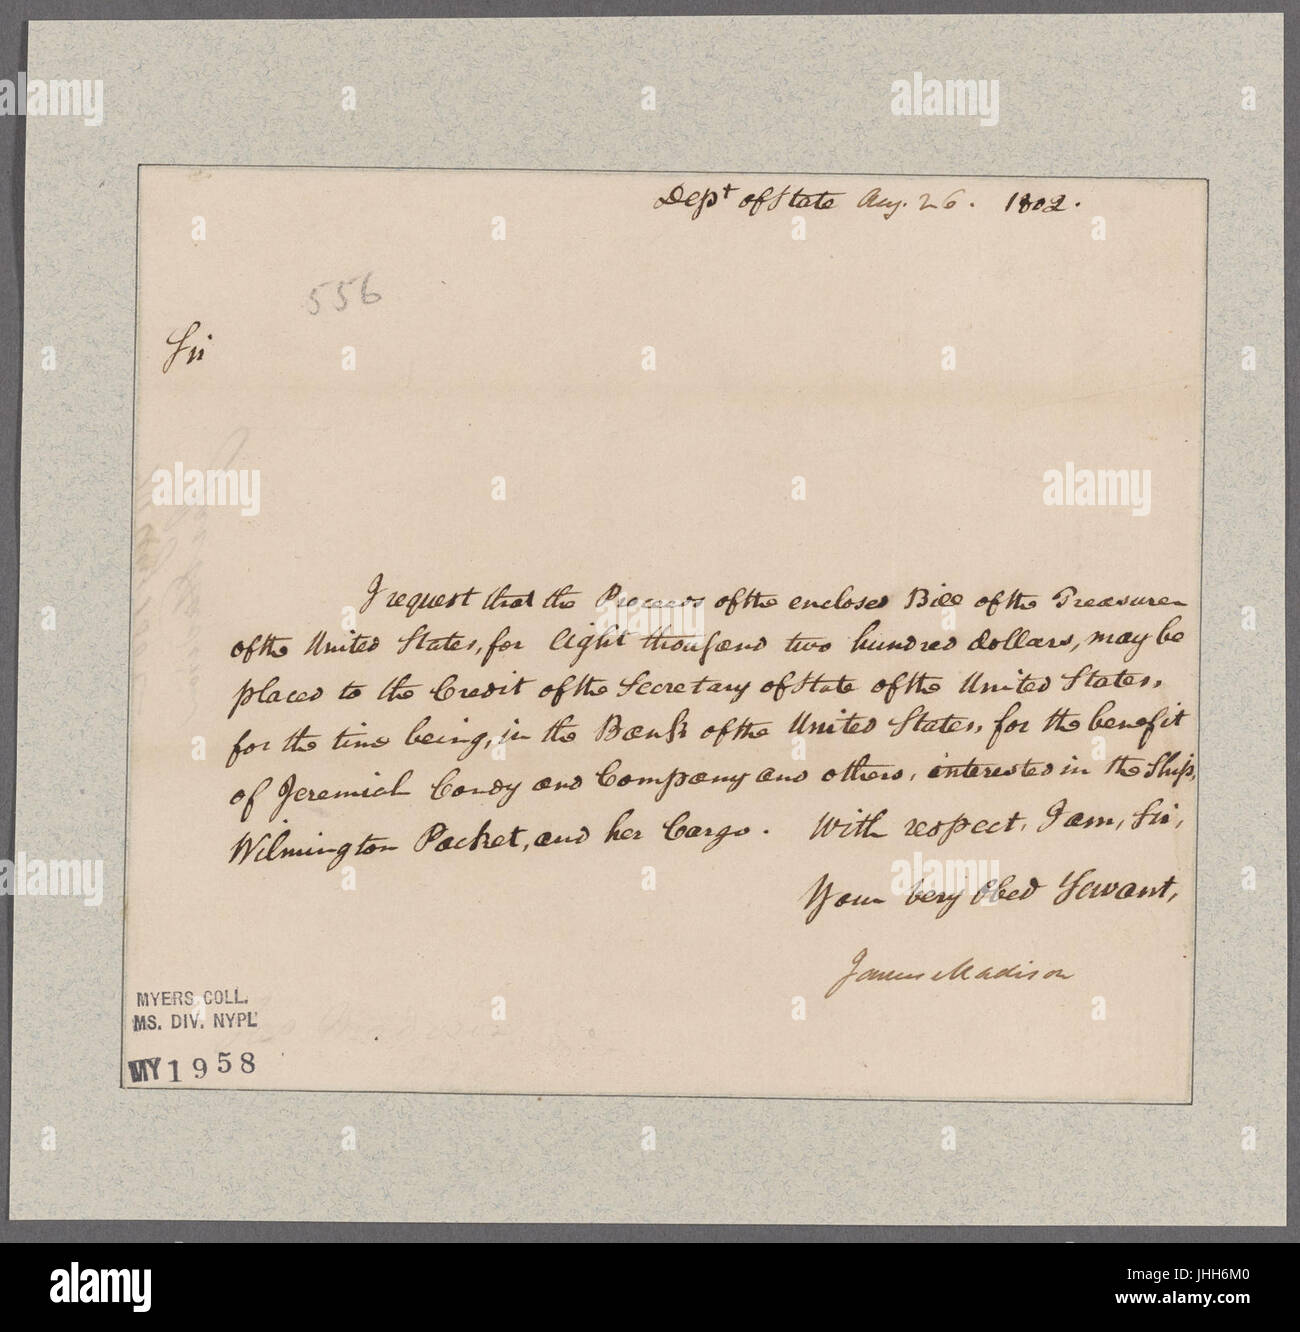 Dept of State Aug. 26. 1802.
556
Sir
I request that the Proceeds of the enclosed Bill of the Treasurer
of the United States, for Eight thousand two hundred dollars, may be
placed to the Credit of the Secretary of State of the United States,
for the time being, in the Bank of the United States, for the benefit
of Jeremiah Condy and Company and others, interested in the Ship,
Wilmington Packet, and her Cargo. With respect, I am, Sir,
Your very Obed Servant,
James Madison
MYERS COLL.
MS. DIV. NYPL
MY 1958
alamy
a
alamy
Image ID: JHH6M0
www.alamy.com